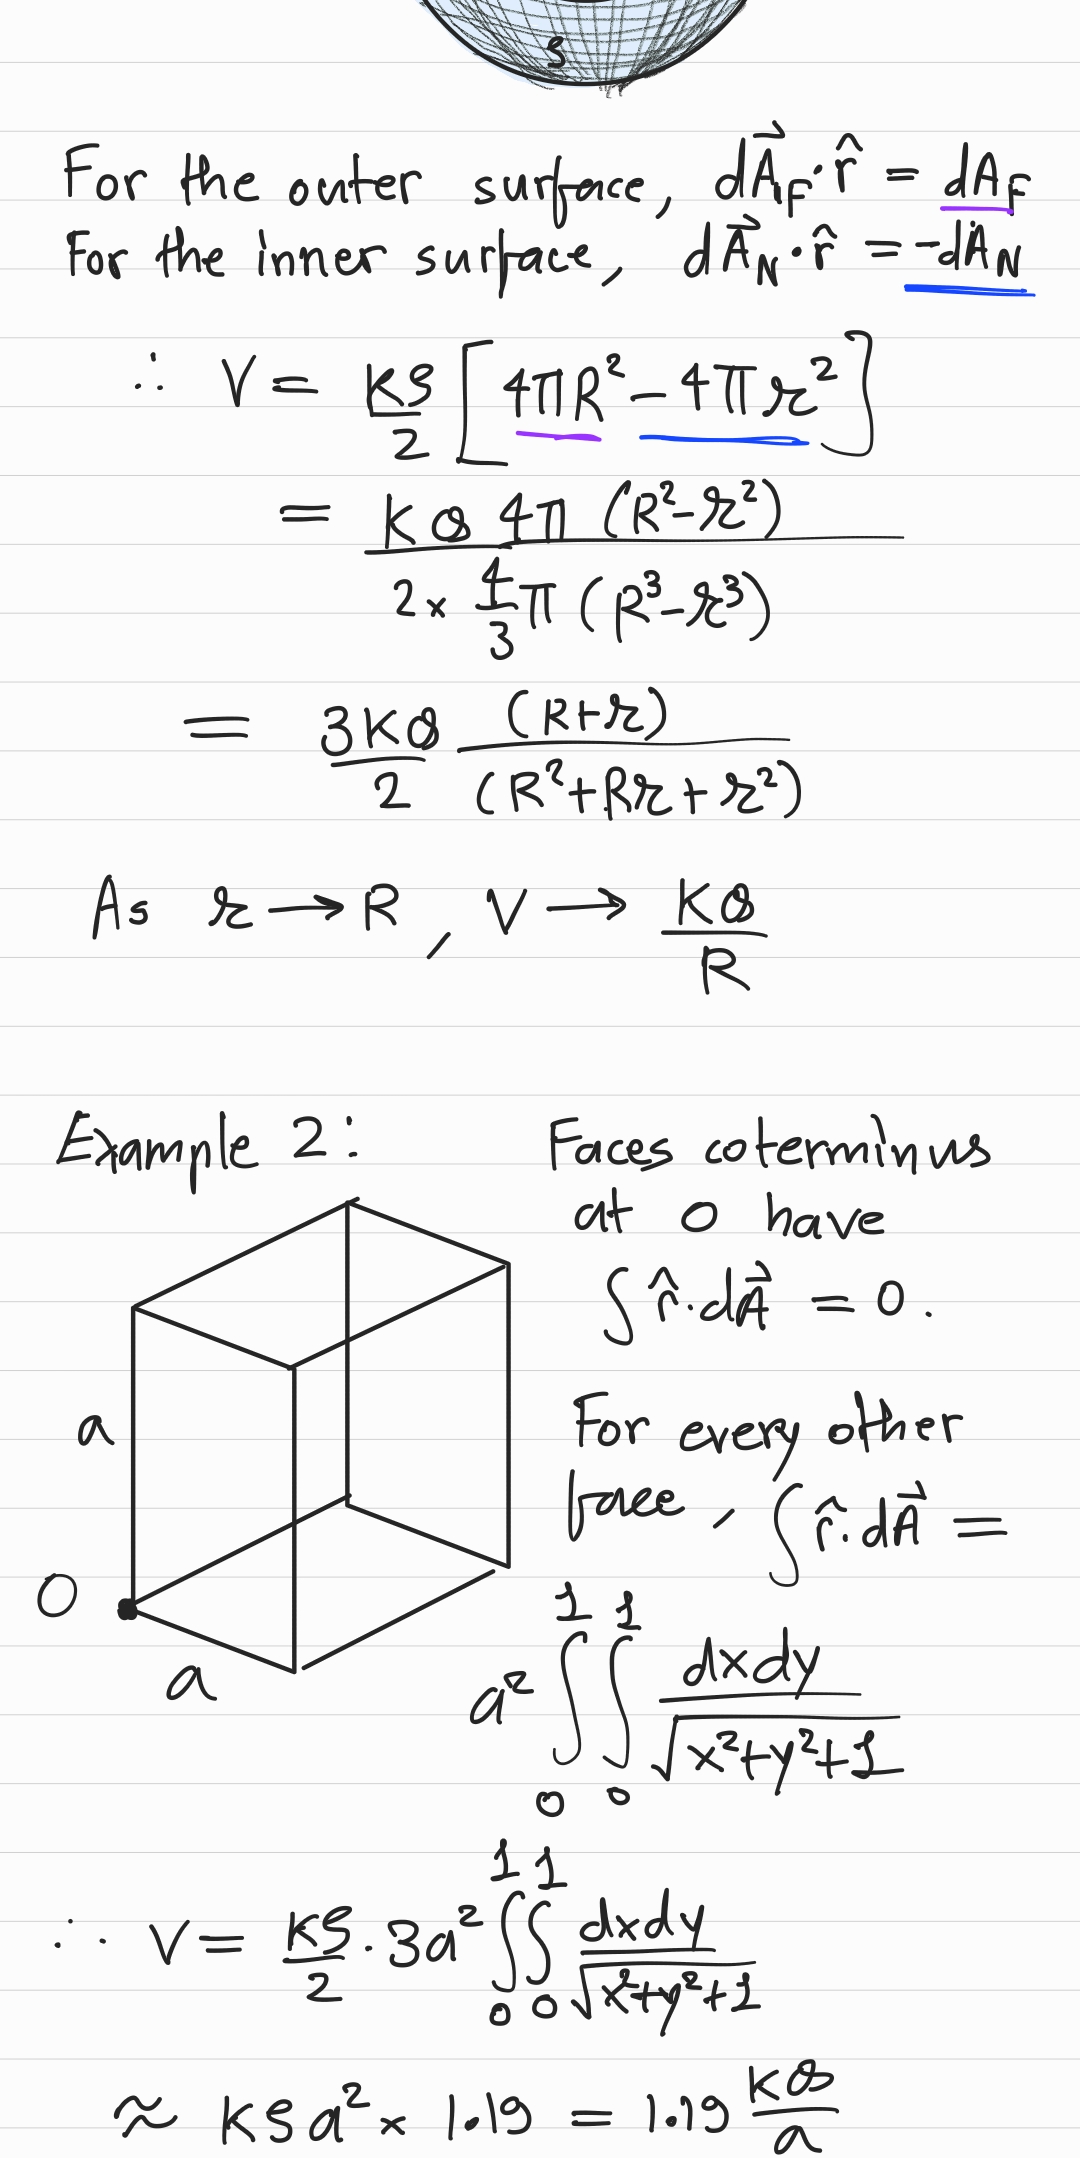 ρ
For the outer surface, dA⃗_F·r̂ = dA_F
For the inner surface, dA⃗_N·r̂ = -dA_N
∴ V = Kρ/2 [4πR² - 4πr²]
= KQ 4π (R²-r²) / 2 × 4/3 π (R³-r³)
= 3KQ/2 (R+r)/(R²+Rr+r²)
As r → R, V → KQ/R
Example 2:
Faces coterminus
at O have
∫ r̂·dA⃗ = 0.
For every other
face, ∫ r̂·dA⃗ =
a² ∫₀¹ ∫₀¹ dxdy/√(x²+y²+1)
a
O
a
∴ V = Kρ/2 · 3a² ∫₀¹ ∫₀¹ dxdy/√(x²+y²+1)
≈ Kρa² × 1.19 = 1.19 KQ/a